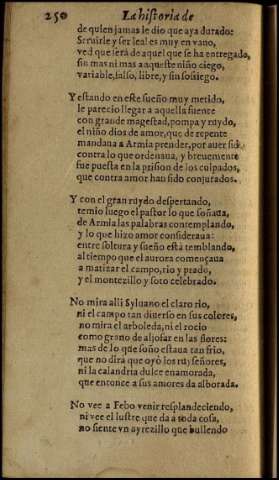 250 La historia de
de quien jamas le dio que aya durado:
Seruirle y ser leal es muy en vano,
ved que sera de aquel que se ha entregado,
sin mas ni mas a aqueste niño ciego,
variable, falso, libre, y sin sosiego.
Y estando en este sueño muy metido,
le parecio llegar a aquella fuente
con grande magestad, pompa y ruydo,
el niño dios de amor, que de repente
mandaua a Armia prender, por auer sido
contra lo que ordenaua, y breuemente
fue puesta en la prision de los culpados,
que contra amor han sido conjurados.
Y con el gran ruydo despertando,
temio luego el pastor lo que soñaua,
de Armia las palabras contemplando,
y lo que hizo amor consideraua:
entre soltura y sueño està temblando,
al tiempo que el aurora començaua
a matizar el campo, rio y prado,
y el montezillo y soto celebrado.
No mira alli Syluano el claro rio,
ni el campo tan diuerso en sus colores,
no mira el arboleda, ni el rocio
como grano de aljofar en las flores:
mas de lo que soño estaua tan frio,
que no dira que oyò los ruyseñores,
ni la calandria dulce enamorada,
que entonce a sus amores da alborada.
No vee a Febo venir resplandeciendo,
ni vee el lustre que da a toda cosa,
no siente vn ayrezillo que bullendo